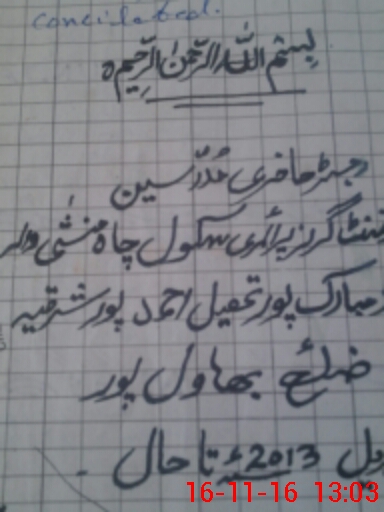 Concileted.
بسم اللہ الرحمٰن الرحیم ہ
رجسٹر حاضری مُدرّسین
گرلز پرائمری سکول چاہ منشی والہ
مبارک پور تحصیل احمد پور شرقیہ
ضلع بھاول پور
2013ء تا حال -
16-11-16 13:03